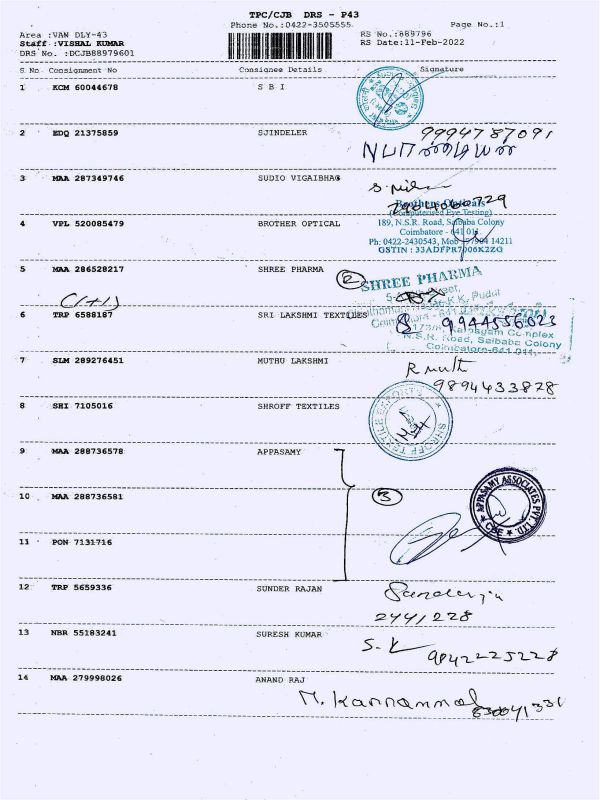 TPC/CJB DRS - P43
Phone No.:0422-3505555 Page No.:1
Area :VAN DLY-43 RS No.:889796
Staff :VISHAL KUMAR RS Date:11-Feb-2022
DRS No. :DCJB88979601
S No Consignment No Consignee Details Signature
1 KCM 60044678 S B I
2 EDQ 21375859 SJINDELER 9994787091
3 MAA 287349746 SUDIO VIGAIBHAG
Brothers Opticals
(Computerised Eye Testing)
4 VPL 520085479 BROTHER OPTICAL 189, N.S.R. Road, Saibaba Colony
Coimbatore - 641 011.
Ph: 0422-2430543, Mob 14211
GSTIN : 33ADFPR7006K2ZG
5 MAA 286528217 SHREE PHARMA 2 SHREE PHARMA
(1+1)
6 TRP 6588187 SRI LAKSHMI TEXTILES 9944556023
N.S.R. Road, Saibaba Colony
Coimbatore-641 011.
7 SLM 289276451 MUTHU LAKSHMI R muth
9894433828
8 SHI 7105016 SHROFF TEXTILES SHROFF TEXTILE
9 MAA 288736578 APPASAMY
10 MAA 288736581 3 APPASAMY ASSOCIATES PVT. LTD. CBE
11 PON 7131716
12 TRP 5659336 SUNDER RAJAN
2441228
13 NBR 55183241 SURESH KUMAR S.K
9842225228
14 MAA 279998026 ANAND RAJ M. Kannammal